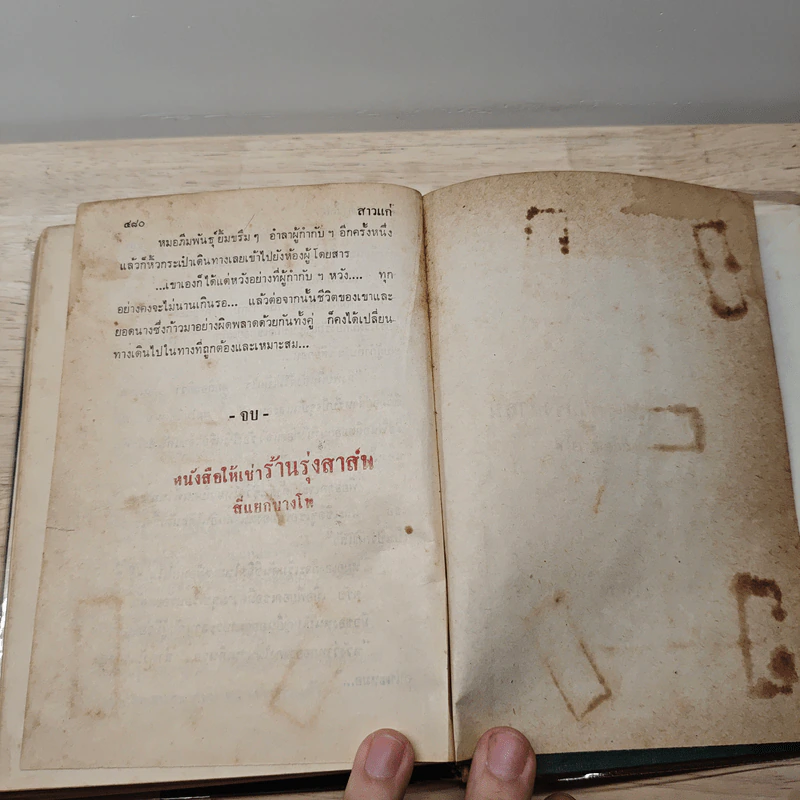 ๔๘๐
สาวแก่
หมอภีมพันธุ์ ยิ้มขรึม ๆ อำลาผู้กำกับ ฯ อีกครั้งหนึ่ง
แล้วก็หิ้วกระเป๋าเดินทางเลยเข้าไปยังห้องผู้โดยสาร
...เขาเองก็ได้แต่หวังอย่างที่ผู้กำกับ ฯ หวัง.... ทุก
อย่างคงจะไม่นานเกินรอ... แล้วต่อจากนั้นชีวิตของเขาและ
ยอดนางซึ่งก้าวมาอย่างผิดพลาดด้วยกันทั้งคู่ ก็คงได้เปลี่ยน
ทางเดินไปในทางที่ถูกต้องและเหมาะสม...
- จบ -
หนังสือให้เช่าร้านรุ่งสาส์น
สี่แยกบางโพ